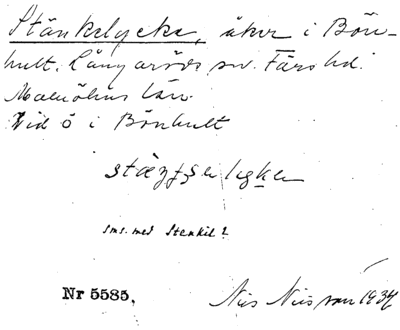 Stänkelycke, åker i Bön-
hult. Långaröds sn. Färs hd.
Malmöhus län.
Vid ö i Bönhult
sms. med Stenkil?
Nr 5585.
Nils Nilsson 1934